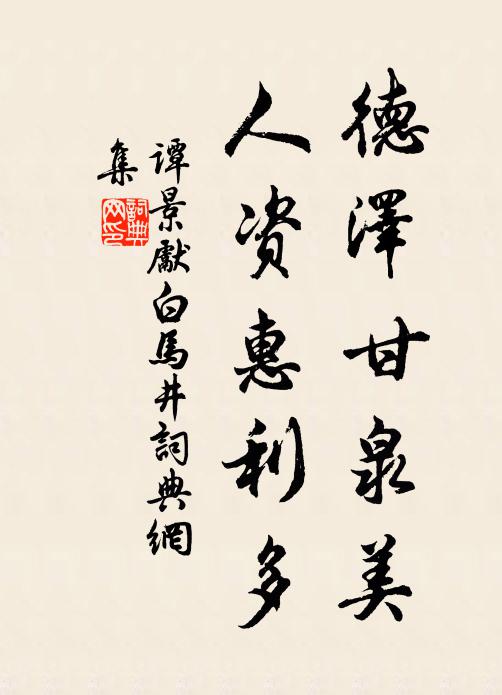 德澤甘泉美
人资惠利多
谭景獻白馬井詞典網
集
詞典
网印